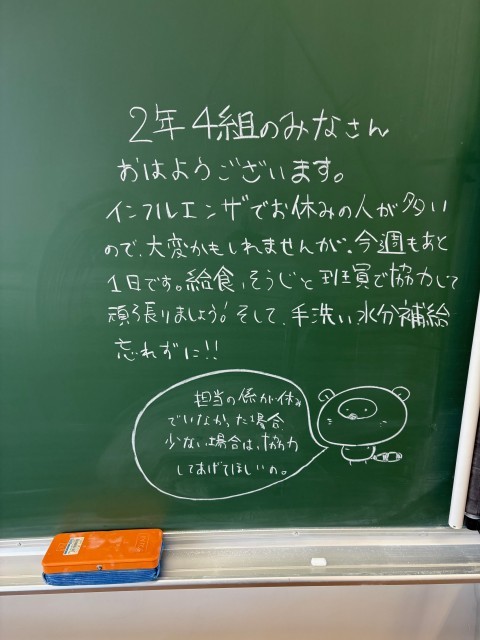 2年4組のみなさん
おはようございます。
インフルエンザでお休みの人が多い
ので、大変かもしれませんが、今週もあと
1日です。給食、そうじと班員で協力して
頑張りましょう! そして、手洗い、水分補給
忘れずに!!
担当の係が休み
でいなかった場合、
少ない場合は、協力
してあげてほしいの。